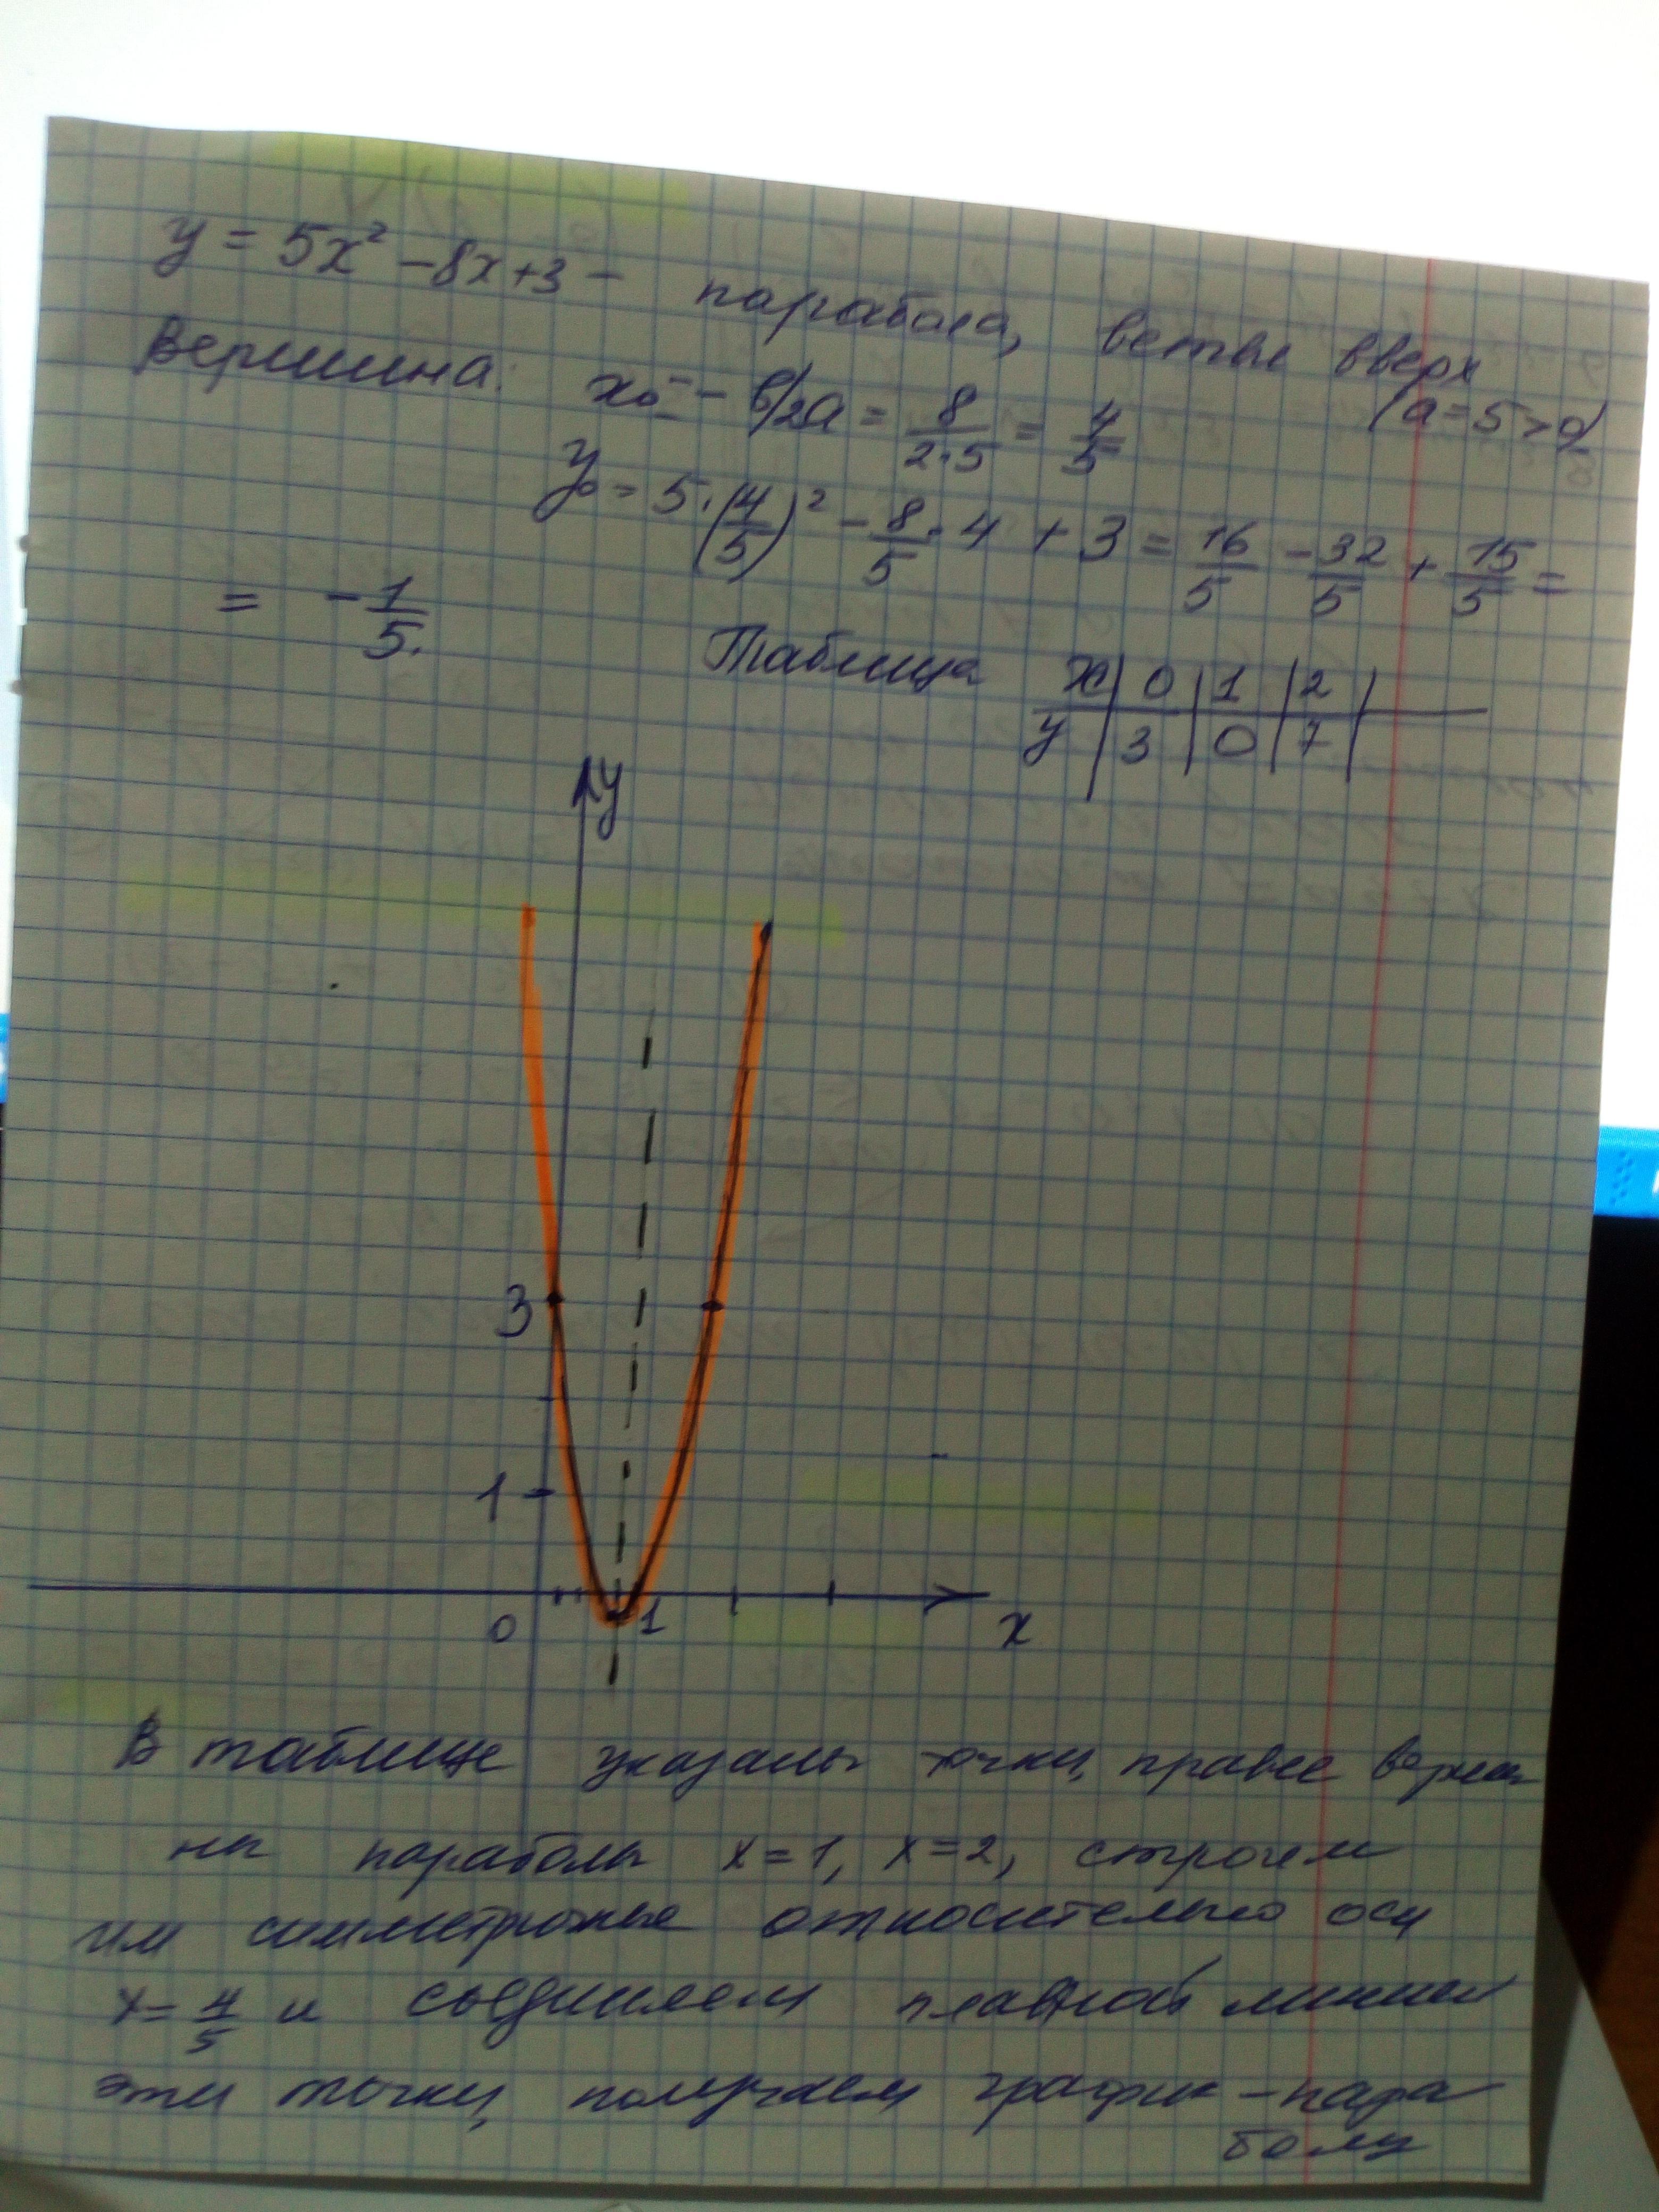 y = 5x² - 8x + 3 - парабола, ветви вверх
(a = 5 > 0)
Вершина: x₀ = - b/2a = 8/(2·5) = 4/5
y₀ = 5·(4/5)² - 8/5·4 + 3 = 16/5 - 32/5 + 15/5 =
= - 1/5.
Таблица
x | 0 | 1 | 2 |
y | 3 | 0 | 7 |
y
3
1
0 1 x
В таблице указаны точки, правее верши
ны параболы x=1, x=2, строим
им симметричные относительно оси
x = 4/5 и соединяем плавной линией
эти точки, получаем график - пара
болу